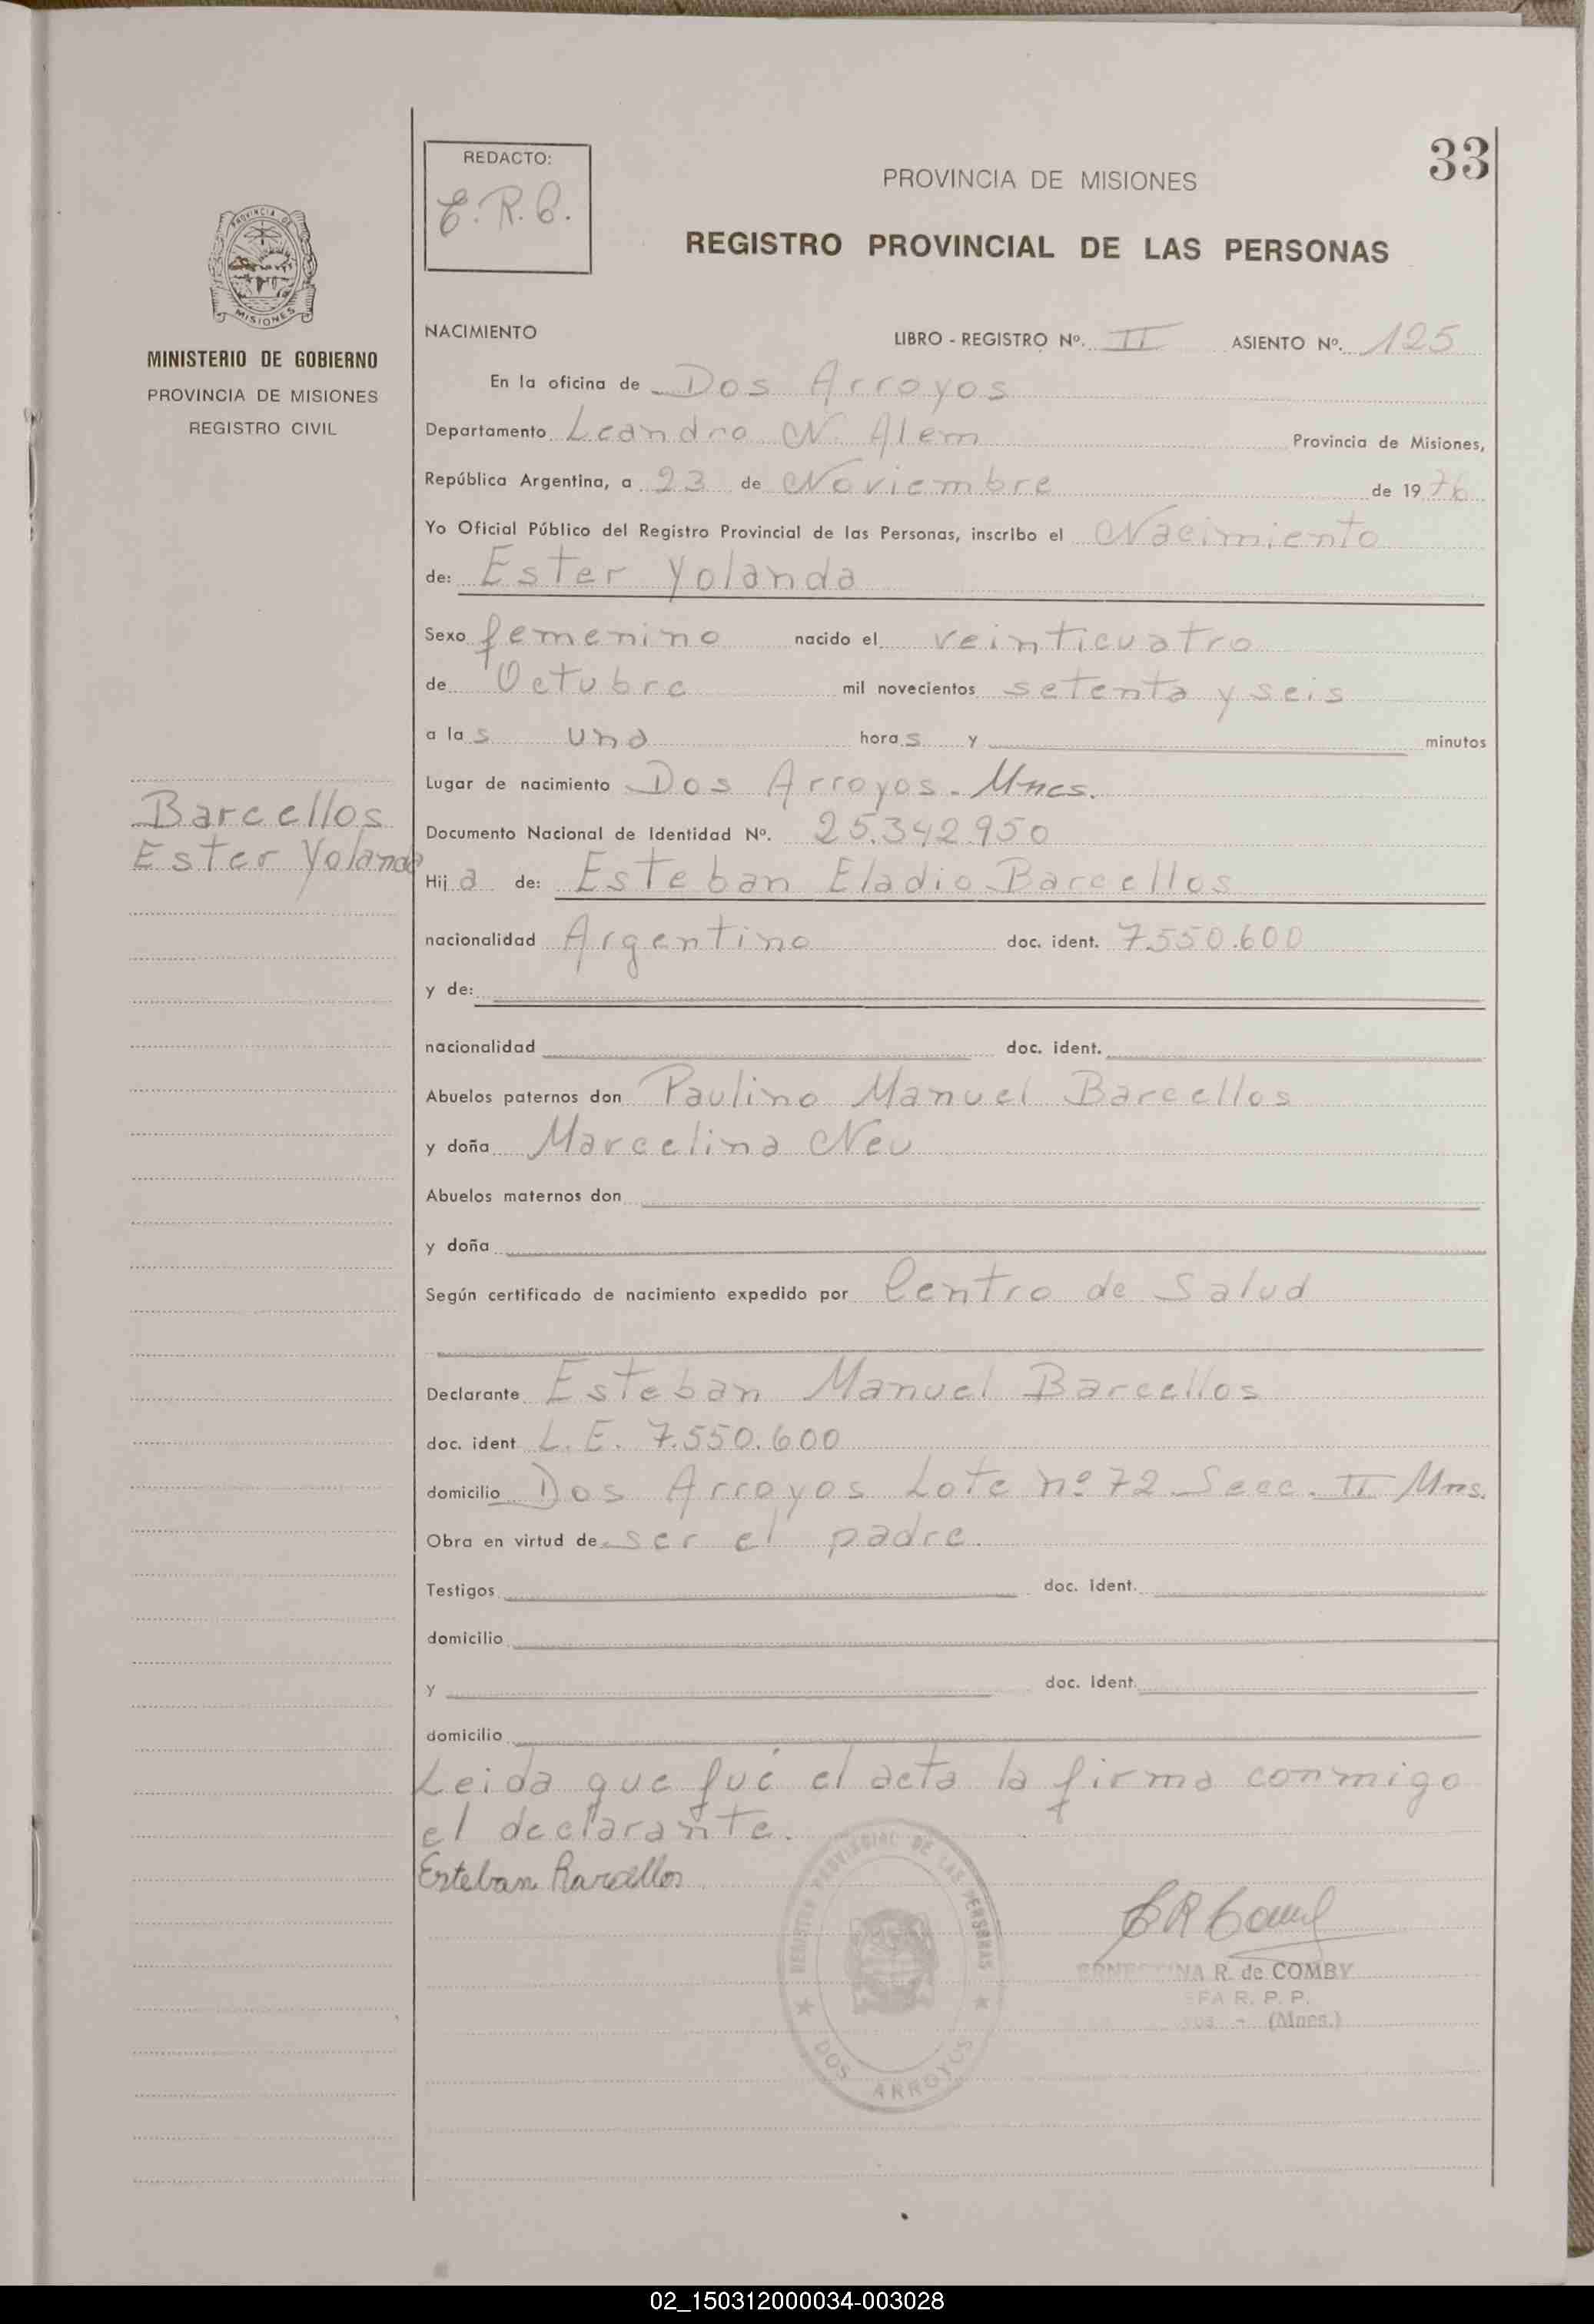 33
REDACTO:
E.R.C.
PROVINCIA DE MISIONES
REGISTRO PROVINCIAL DE LAS PERSONAS
PROVINCIA DE
MISIONES
MINISTERIO DE GOBIERNO
PROVINCIA DE MISIONES
REGISTRO CIVIL
NACIMIENTO LIBRO - REGISTRO Nº. II ASIENTO Nº. 125
En la oficina de Dos Arroyos
Departamento Leandro N. Alem Provincia de Misiones,
República Argentina, a 23 de Noviembre de 1976
Yo Oficial Público del Registro Provincial de las Personas, inscribo el Nacimiento
de: Ester Yolanda
Sexo femenino nacido el veinticuatro
de Octubre mil novecientos setenta y seis
a las una horas y minutos
Lugar de nacimiento Dos Arroyos - Mnes.
Barcellos
Ester Yolanda
Documento Nacional de Identidad Nº. 25.342.950
Hija de: Esteban Eladio Barcellos
nacionalidad Argentino doc. ident. 7.550.600
y de:
nacionalidad doc. ident.
Abuelos paternos don Paulino Manuel Barcellos
y doña Marcelina Neu
Abuelos maternos don
y doña
Según certificado de nacimiento expedido por Centro de Salud
Declarante Esteban Manuel Barcellos
doc. ident L.E. 7.550.600
domicilio Dos Arroyos Lote nº 72 Secc. II Mns.
Obra en virtud de ser el padre.
Testigos doc. ident.
domicilio
y doc. ident.
domicilio
Leida que fué el acta la firma conmigo
el declarante.
Esteban Barcellos
REGISTRO PROVINCIAL DE LAS PERSONAS
DOS ARROYOS
R. de COMBY
R. P. P.
(Mnes.)
02_150312000034-003028